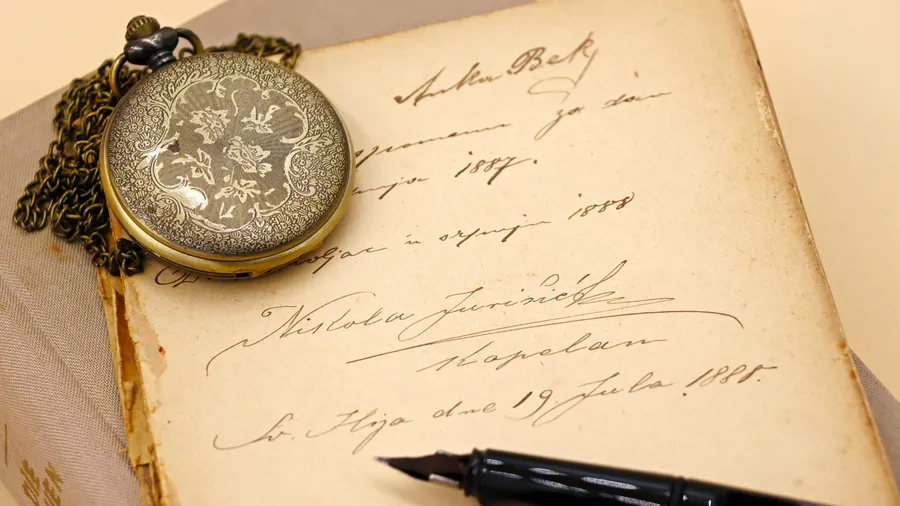 Anka Bek
za dan
1887.
u srpnju 1888
Nikola Jurišić
Kapelan
Sv. Ilija dne 19 Jula 1888.